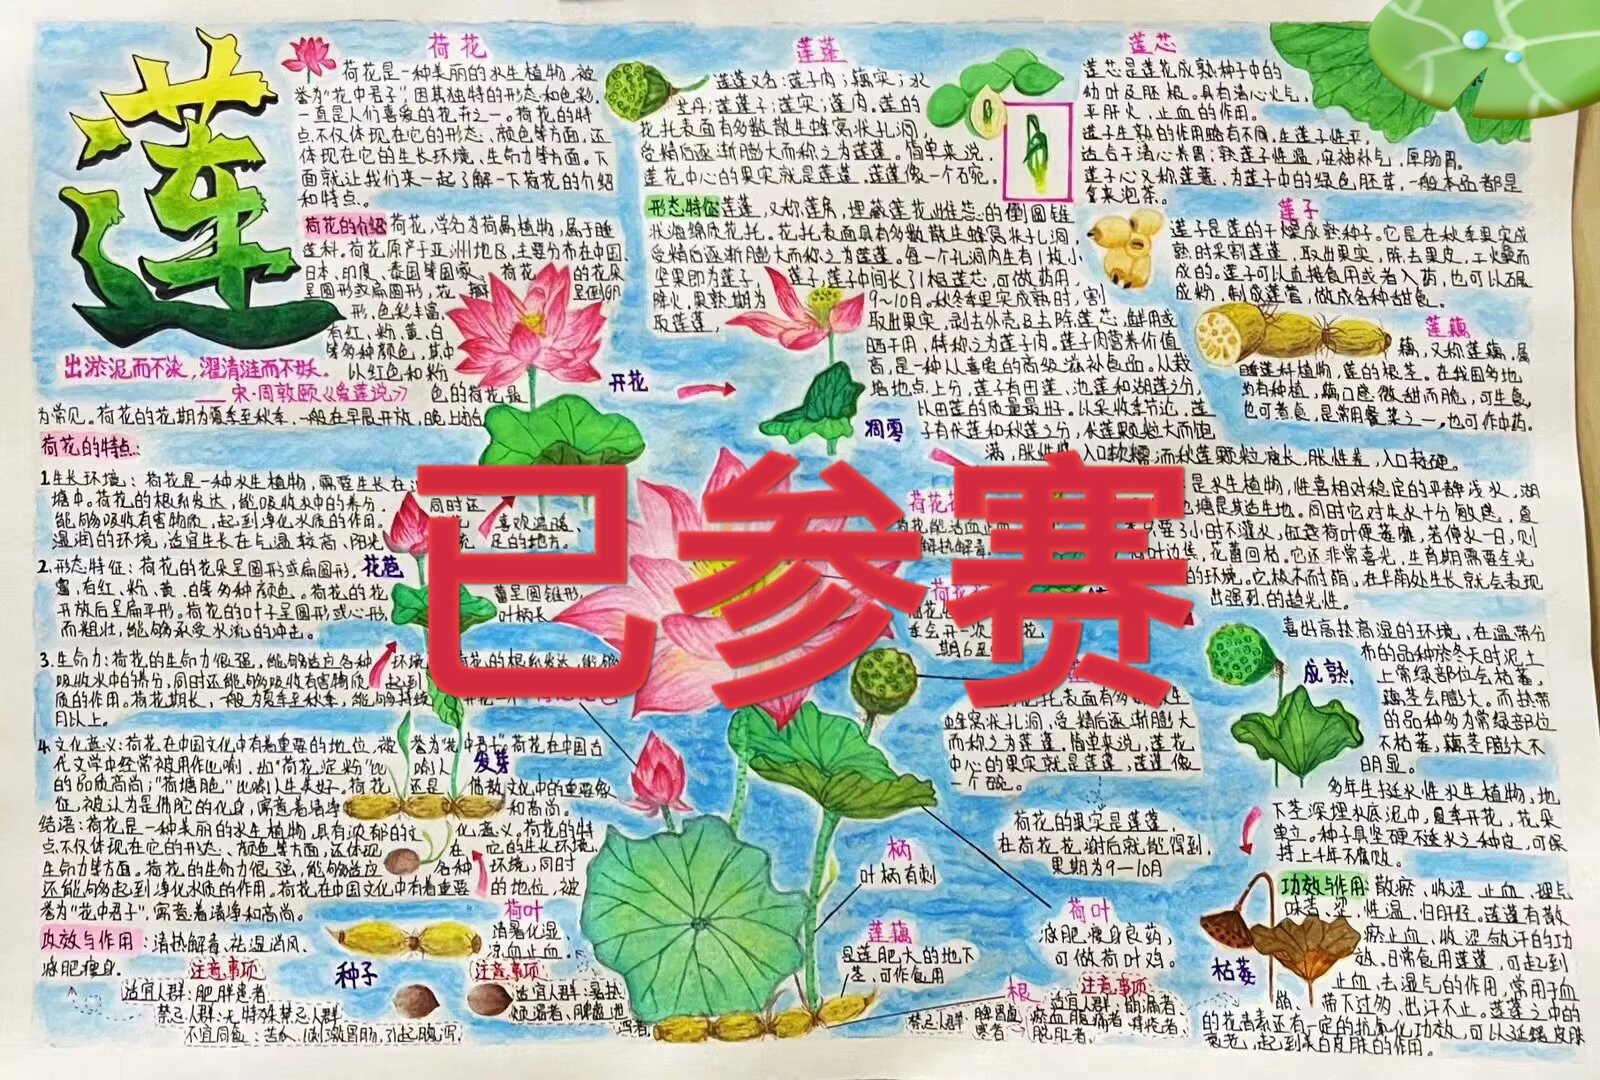 莲
荷花
荷花是一种美丽的水生植物,被
誉为“花中君子”,因其独特的形态和色彩,
一直是人们喜爱的花卉之一。荷花的特
点不仅体现在它的形态、颜色等方面,还
体现在它的生长环境、生命力等方面。下
面就让我们来一起了解一下荷花的介绍
和特点。
荷花的介绍 荷花,学名为荷属植物,属于睡
莲科。荷花原产于亚洲地区,主要分布在中国、
日本、印度、泰国等国家。荷花的花朵
呈圆形或扁圆形,花瓣呈倒卵
形,色彩丰富,
有红、粉、黄、白
等多种颜色,其中
以红色和粉
色的荷花最
为常见。荷花的花期为夏季至秋季,一般在早晨开放,晚上始
出淤泥而不染,濯清涟而不妖。
——宋·周敦颐《爱莲说》
荷花的特点:
1.生长环境:荷花是一种水生植物,需要生长在
塘中。荷花的根系发达,能吸收水中的养分,同时还
能够吸收有害物质,起到净化水质的作用。
喜欢温暖、
湿润的环境,适宜生长在气温较高、阳光
足的地方。
2.形态特征:荷花的花朵呈圆形或扁圆形,
富,有红、粉、黄、白等多种颜色。荷花的花
蕾呈圆锥形,
开放后呈扁平形。荷花的叶子呈圆形或心形,
叶柄长
而粗壮,能够承受水流的冲击。
3.生命力:荷花的生命力很强,能够适应各种环境
荷花的根系发达,能够
吸收水中的养分,同时还能够吸收有害物质,起到
质的作用。荷花期长,一般为夏季至秋季,能够持续
月以上。
4.文化意义:荷花在中国文化中有着重要的地位,被誉为“花中君子”。荷花在中国古
代文学中经常被用作比喻,如“荷花淀粉”比喻人
的品质高尚;“荷塘月色”
荷花还是佛教文化中的重要象
征,被认为是佛陀的化身,寓意着清净和高尚。
结语:荷花是一种美丽的水生植物,具有浓郁的文化意义。荷花的特
点不仅体现在它的形态、颜色等方面,还体现在它的生长环境、
生命力等方面。荷花的生命力很强,能够适应各种环境,同时
还能够起到净化水质的作用。荷花在中国文化中有着重要的地位,被
誉为“花中君子”,寓意着清净和高尚。
功效与作用:清热解毒、祛湿消风、
减肥瘦身。
注意事项
适宜人群:肥胖患者
禁忌人群:无特殊禁忌人群
不宜同食:
刺激胃肠,引起腹泻。
种子
荷叶
清暑化湿、
凉血止血。
注意事项
开花
凋零
花苞
发芽
已参赛
莲蓬
莲蓬又名:莲子肉;藕实;水
芝丹;莲蓬子;莲实;莲肉。莲的
花托表面有多数散生蜂窝状孔洞,
受精后逐渐膨大而称之为莲蓬。简单来说,
莲花中心的果实就是莲蓬。莲蓬像一个碗。
形态特征 莲蓬,又称莲房,埋藏莲花雌蕊的倒圆锥
状海绵质花托。花托表面具有多数散生蜂窝状孔洞,
受精后逐渐膨大而称之为莲蓬。每一个孔洞内生有1枚小
坚果即为莲子,莲子中间长了1根莲芯,可做药用,
降火,果熟期为9~10月。秋冬季果实成熟时,割
取莲蓬,取出果实,剥去外壳及去除莲芯,鲜用或
晒干用,特称之为莲子肉。莲子肉营养价值
高,是一种人喜爱的高级滋补食品。从栽
培地点上分,莲子有田莲、池莲和湖莲之分,
以田莲的质量最好。以采收季节论,莲
子有伏莲和秋莲之分,伏莲颗粒大而饱
满,胀性
入口软糯;而秋莲颗粒瘦长,胀性差,入口较硬。
莲芯
莲芯是莲花成熟种子中的
幼叶及胚根。具有清心火气,
平肝火,止血的作用。
莲子生熟的作用略有不同,生莲子性平,
适合于清心养胃;熟莲子性温,安神补气,厚肠胃。
莲子心又称莲薏,为莲子中的绿色胚芽,一般本品都是
拿来泡茶。
莲子
莲子是莲的干燥成熟种子。它是在秋季果实成
熟时采割莲蓬,取出果实,除去果皮,干燥而
成的。莲子可以直接食用或者入药,也可以石展
成粉,制成莲蓉,做成各种甜食。
莲藕
藕,又称莲藕,属
睡莲科植物,莲的根茎。在我国多地
均有种植,藕口感微甜而脆,可生食
也可煮食,是常用餐菜之一,也可作中药。
是水生植物,性喜相对稳定的平静浅水,湖
塘是其适生地。同时它对失水十分敏感,夏
只要3小时不灌水,
荷叶便萎靡,若停水一日,则
荷叶边焦,花蕾回枯。它还非常喜光,生育期需要全光
的环境。它极不耐荫,在半荫处生长就会表现
出强烈的趋光性。
喜出高热高湿的环境,在温带分
布的品种於冬天时泥土
上常绿部位会枯萎,
藕茎会膨大。而热带
的品种多为常绿部位
不枯萎,藕茎膨大不
明显。
成熟
多年生挺水性水生植物,地
下茎深埋水底泥中,夏季开花,花朵
单立。种子具坚硬不透水之种皮,可保
持上千年不腐败。
功效与作用:散瘀、收涩、止血、理气
味苦、涩、性温、归肝经。莲蓬有散
瘀止血、收涩敛汗的功
效。日常食用莲蓬,可起到
止血、去湿气的作用,常用于血
崩、带下过多、出汗不止。莲蓬之中的
的花青素还有一定的抗氧化功效,可以延缓皮肤
衰老,起到美白皮肤的作用。
枯萎
花托表面有多数散生
蜂窝状孔洞,受精后逐渐膨大
而称之为莲蓬。简单来说,莲花
中心的果实就是莲蓬,莲蓬像
一个碗。
荷花的果实是莲蓬,
在荷花花谢后就能得到,
果期为9—10月
柄
叶柄有刺
荷叶
减肥瘦身良药,
可做荷叶鸡。
莲藕
是莲肥大的地下
茎,可作食用
根
注意事项
禁忌人群